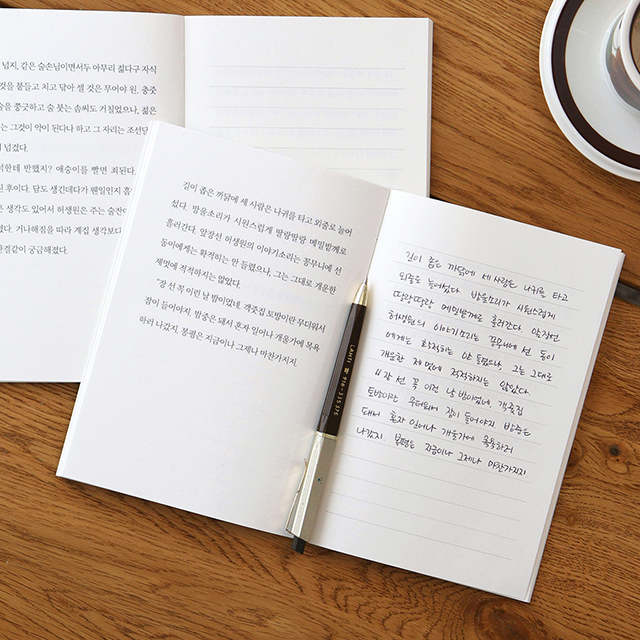 넘지, 같은 술손님이면서두 아무리 젊다구 자식
것을 붙들고 치고 닦아 셀 것은 무어야 원. 충줏
술을 쫓구하고 술 붓는 솜씨도 거칠었으나, 젊은
는 그것이 약이 된다나 하고 그 자리는 조선달
넘겼다.
한테 반했지? 애숭이를 빨면 죄된다.
후이다. 담도 생긴데다가 웬일인지 흠
생각도 있어서 허생원은 주는 술잔이
다. 거나해짐을 따라 계집 생각보다
한결같이 궁금해졌다.
길이 좁은 까닭에 세 사람은 나귀를 타고 외줄로 늘어
섰다. 방울소리가 시원스럽게 딸랑딸랑 메밀밭께로
흘러간다. 앞장선 허생원의 이야기소리는 꽁무니에 선
동이에게는 확적히는 안 들렸으나, 그는 그대로 개운한
제멋에 적적하지는 않았다.
"장 선 꼭 이런 날 밤이었네. 객줏집 토방이란 무더워서
잠이 들어야지. 밤중은 돼서 혼자 일어나 개울가에 목욕
하러 나갔지. 봉평은 지금이나 그제나 마찬가지지.
길이 좁은 까닭에 세 사람은 나귀를 타고
외줄로 늘어섰다. 방울소리가 시원스럽게
딸랑딸랑 메밀밭께로 흘러간다. 앞장선
허생원의 이야기소리는 꽁무니에 선 동이
에게는 확적히는 안 들렸으나, 그는 그대로
개운한 제멋에 적적하지는 않았다.
"장 선 꼭 이런 날 밤이었네. 객줏집
토방이란 무더워서 잠이 들어야지 밤중은
돼서 혼자 일어나 개울가에 목욕하러
나갔지. 봉평은 지금이나 그제나 마찬가지지
LAMY